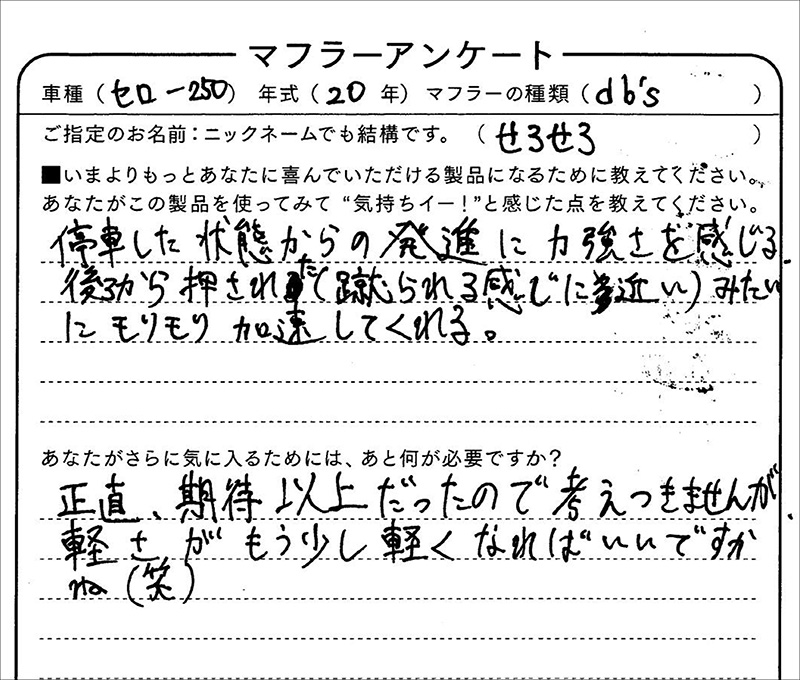 マフラーアンケート
車種（セロー250） 年式（20 年） マフラーの種類（db's ）
ご指定のお名前：ニックネームでも結構です。（せろせろ ）
■いまよりもっとあなたに喜んでいただける製品になるために教えてください。
あなたがこの製品を使ってみて“気持ちイー！”と感じた点を教えてください。
停車した状態からの発進に力強さを感じる.
後ろから押された(蹴られる感じに近い)みたい
にモリモリ加速してくれる。
あなたがさらに気に入るためには、あと何が必要ですか？
正直、期待以上だったので考えつきませんが、
軽さがもう少し軽くなればいいですか
ね(笑)